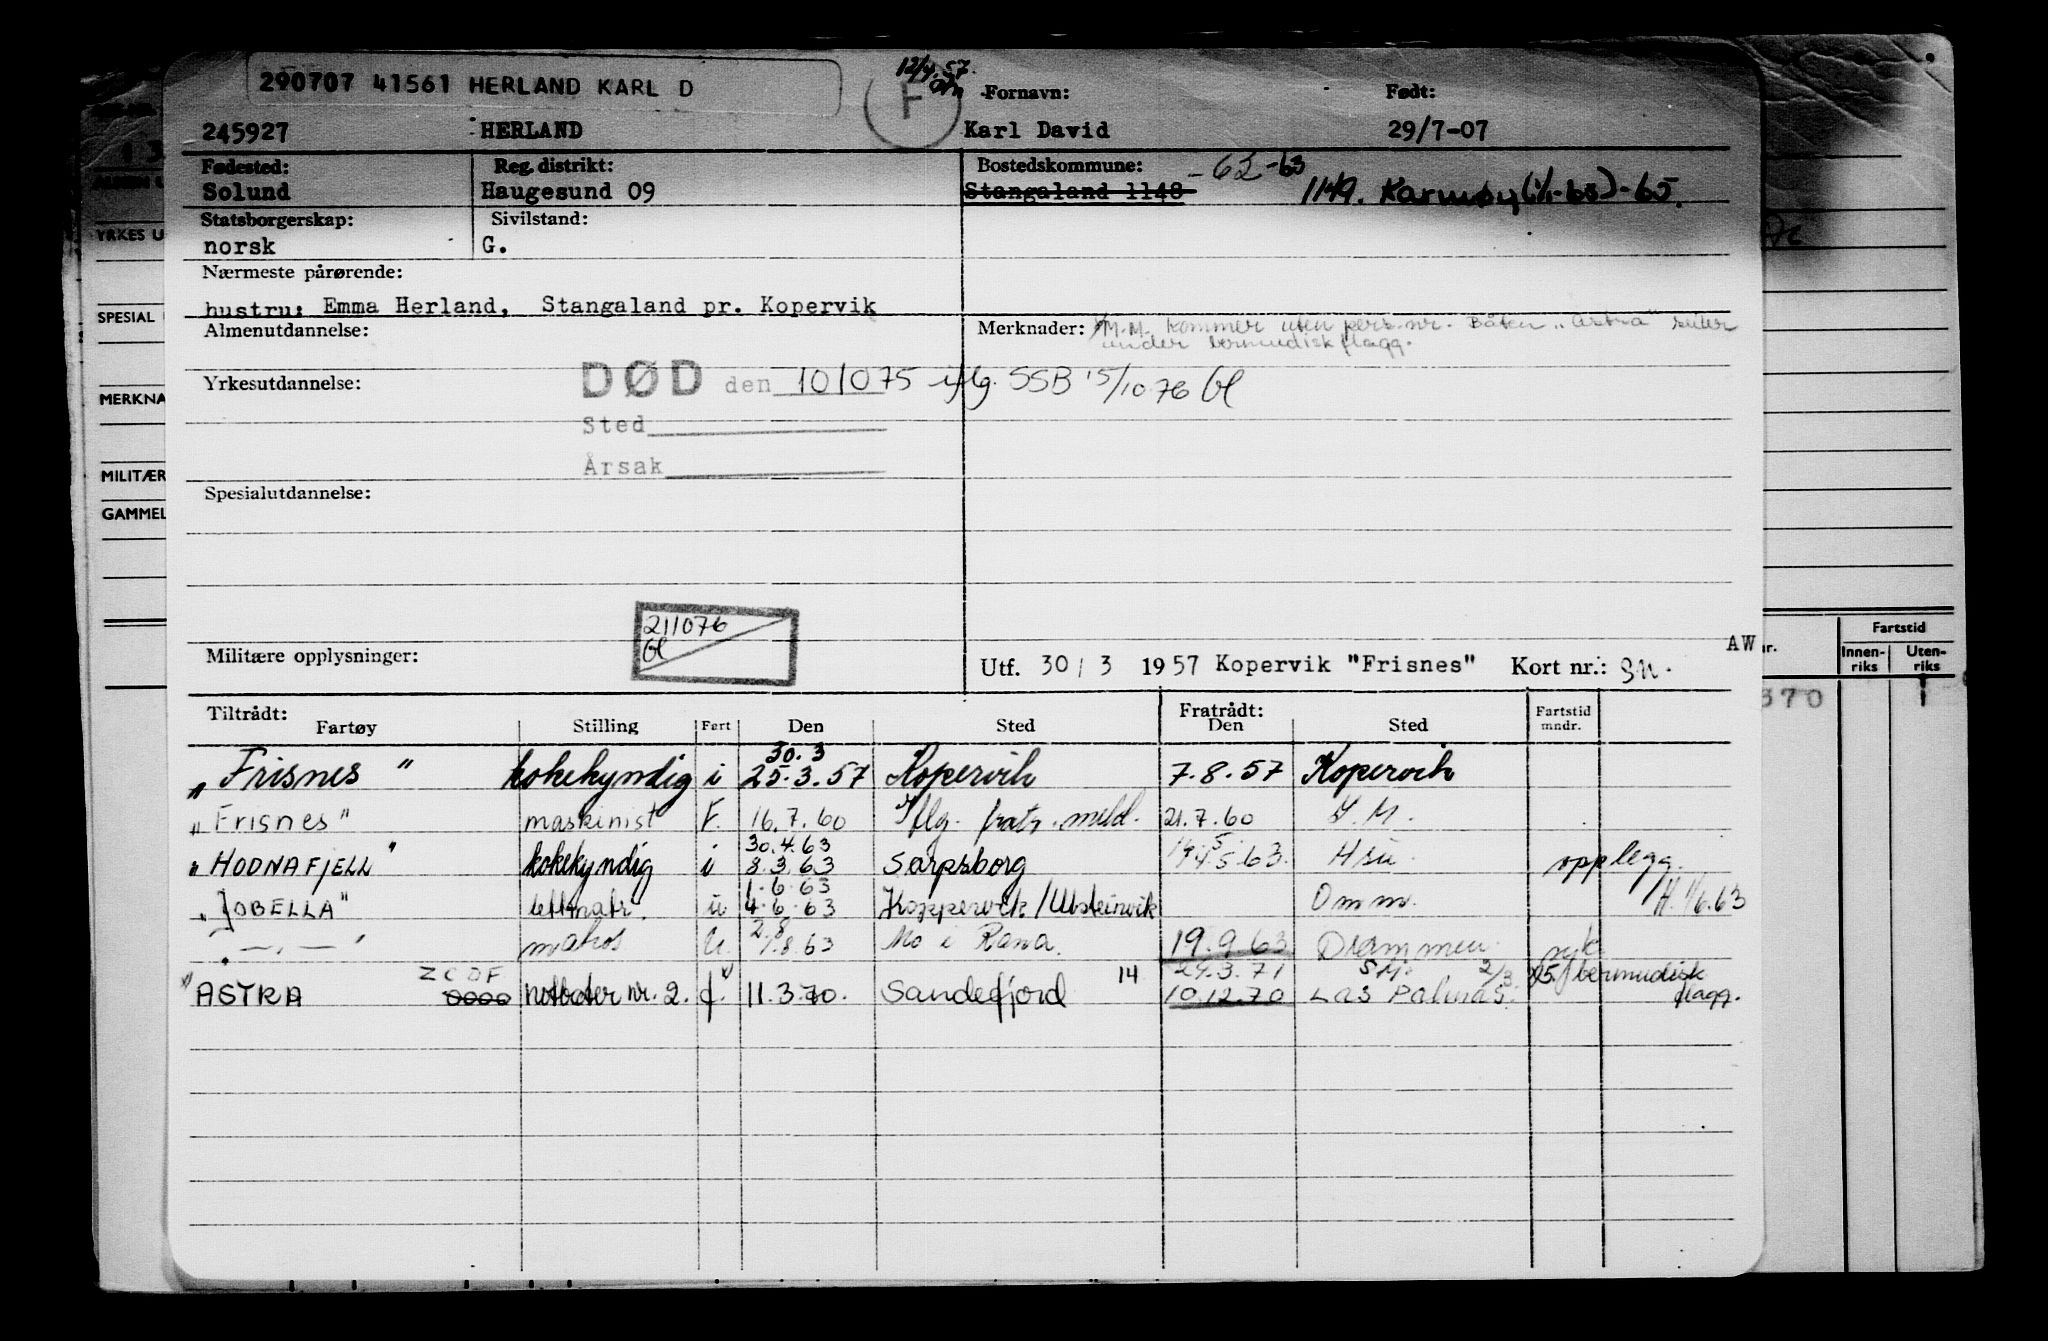 290707 41561 HERLAND KARL D
12/4.57.
F
Fornavn: Født:
245927 HERLAND Karl David 29/7-07
Fødested: Reg. distrikt: Bostedskommune: -62-63
Solund Haugesund 09 Stangaland 1148 1149. Karmøy (1/1-63)-65.
Statsborgerskap: Sivilstand:
norsk G.
Nærmeste pårørende:
hustru: Emma Herland, Stangaland pr. Kopervik
Almenutdannelse: Merknader: M.M. kommer uten pers.nr. Båten "Astra" seiler
under bermudisk flagg.
Yrkesutdannelse: DØD den 101075 iflg. SSB 15/10 76 Gl
Sted
Årsak
Spesialutdannelse:
211076
Gl
Militære opplysninger:
AW
Utf. 30/3 1957 Kopervik "Frisnes" Kort nr.:
Tiltrådt: Fratrådt:
Fartøy Stilling Fart Den Sted Den Sted Fartstid mndr.
30.3
"Frisnes" kokekyndig i 25.3.57 Kopervik 7.8.57 Kopervik
"Frisnes" maskinist F. 16.7.60 Iflg. fratr. meld. 21.7.60 S.M.
30.4.63
"HODNAFJELL" kokekyndig i 8.3.63 Sarpsborg 14.5.63. Hsu. opplegg.
1.6.63
"JOBELLA" lettmatr. u 4.6.63 Koppervik/Ulsteinvik Omm. H. 1/6.63
2.8
— " — matros U. 1.8.63 Mo i Rana. 19.9.63 Drammen. syk
ZCDF 14 24.3.71 S.M. 2/3 25. bermudisk
"ASTRA 0000 notbåter nr. 2. f. 11.3.70. Sandefjord 10.12.70 Las Palmas. flagg.
YRKES U
SPESIAL
MERKNA
MILITÆR
GAMMEL
Fartstid
Innen-
riks
Uten-
riks
nr.
370